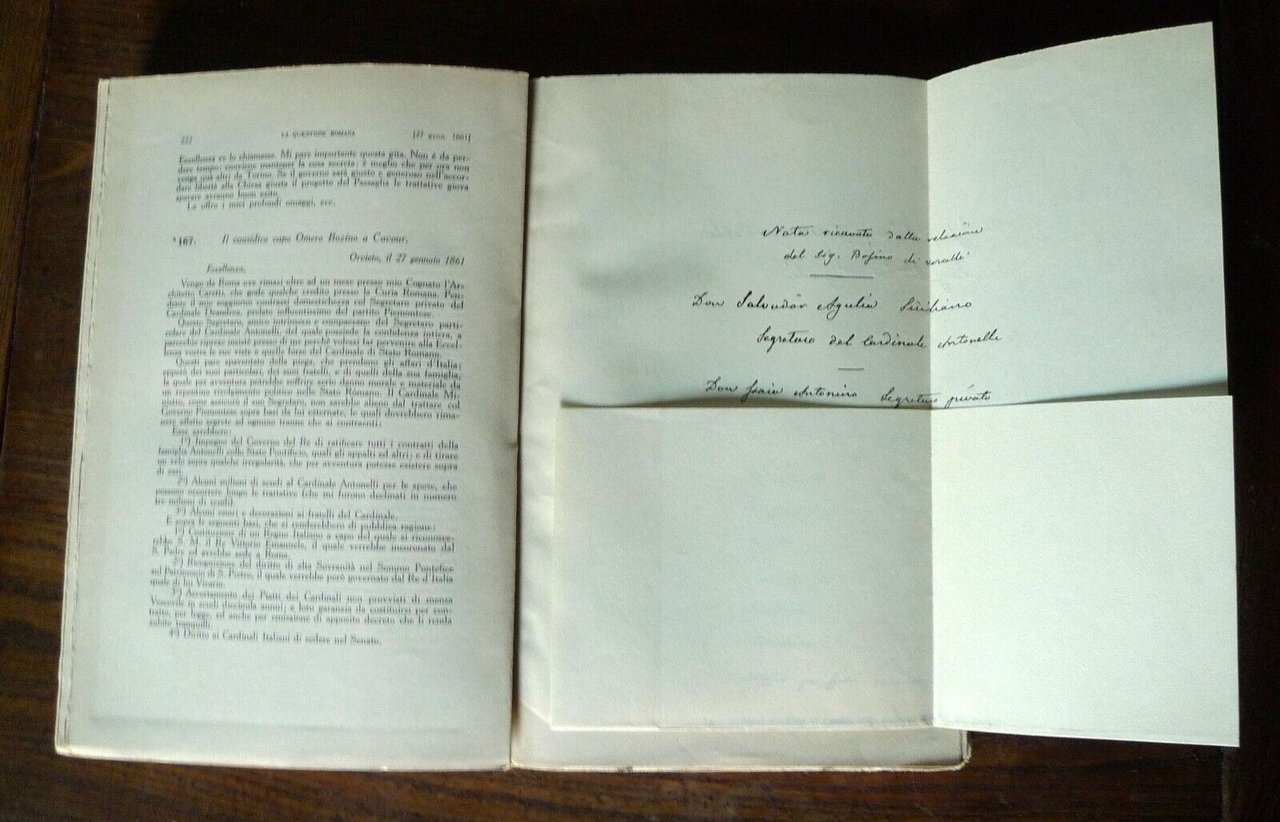 LA QUESTIONE ROMANA [27 genn. 1861]
Eccellenza ve lo chiamasse. Mi pare importante questa gita. Non è da per-
dere tempo: conviene mantener la cosa secreta; è meglio che per ora non
venga qui altri da Torino. Se il governo sarà giusto e generoso nell'accor-
dare libertà alla Chiesa giusta il progetto del Passaglia le trattative giova
sperare avranno buon esito.
Le offro i miei profondi omaggi, ecc.
*187. Il causidico capo Omero Bozino a Cavour.
Orvieto, il 27 gennaio 1861
Eccellenza,
Vengo da Roma ove rimasi oltre ad un mese presso mio Cognato l'Ar-
chitetto Caretti, che gode qualche credito presso la Curia Romana. Pen-
dente il mio soggiorno contrassi domestichezza col Segretaro privato del
Cardinale Deandrea, prelato influentissimo del partito Piemontese.
Questo Segretaro, amico intrinseco e compaesano del Segretaro parti-
colare del Cardinale Antonelli, del quale possiede la confidenza intiera, a
parecchie riprese insisté presso di me perché volessi far pervenire alla Eccel-
lenza vostra le sue viste e quelle forse del Cardinale di Stato Romano.
Questi pare spaventato della piega, che prendono gli affari d'Italia;
epperò dei suoi particolari, dei suoi fratelli, e di quelli della sua famiglia,
la quale per avventura potrebbe soffrire serio danno morale e materiale da
un repentino rivolgimento politico nello Stato Romano. Il Cardinale Mi-
nistro, come assicurò il suo Segretaro, non sarebbe alieno dal trattare col
Governo Piemontese sopra basi da lui esternate, le quali dovrebbero rima-
nere affatto segrete ad ognuno tranne che ai contraenti:
Esse sarebbero:
1º) Impegno del Governo del Re di ratificare tutti i contratti della
famiglia Antonelli collo Stato Pontificio, quali gli appalti ed altri; e di tirare
un velo sopra qualche irregolarità, che per avventura potesse esistere sopra
di essi.
2º) Alcuni milioni di scudi al Cardinale Antonelli per le spese, che
possono occorrere lungo le trattative (che mi furono declinati in numero
tre milioni di scudi).
3º) Alcuni onori e decorazioni ai fratelli del Cardinale.
E sopra le seguenti basi, che si renderebbero di pubblica ragione:
1º) Costituzione di un Regno Italiano a capo del quale si riconosce-
rebbe S. M. il Re Vittorio Emanuele, il quale verrebbe incoronato dal
S. Padre ed avrebbe sede a Roma.
2º) Ricognizione del diritto di alta Sovranità nel Sommo Pontefice
sul Patrimonio di S. Pietro, il quale verrebbe però governato dal Re d'Italia
quale di lui Vicario.
3º) Accertamento dei Piatti dei Cardinali non provvisti di mensa
Vescovile in scudi diecimila annui; e loro garanzia da costituirsi per con-
tratto, per legge, ed anche per emissione di apposito decreto che li renda
subito tranquilli.
4º) Diritto ai Cardinali Italiani di sedere nel Senato.
Nota ricavata dalla relazione
del Sig. Bosino di Vercelli
Don Salvador Agulia Siciliano
Segretaro del Cardinale Antonelli
Don Isaia Antonino Segretaro privato